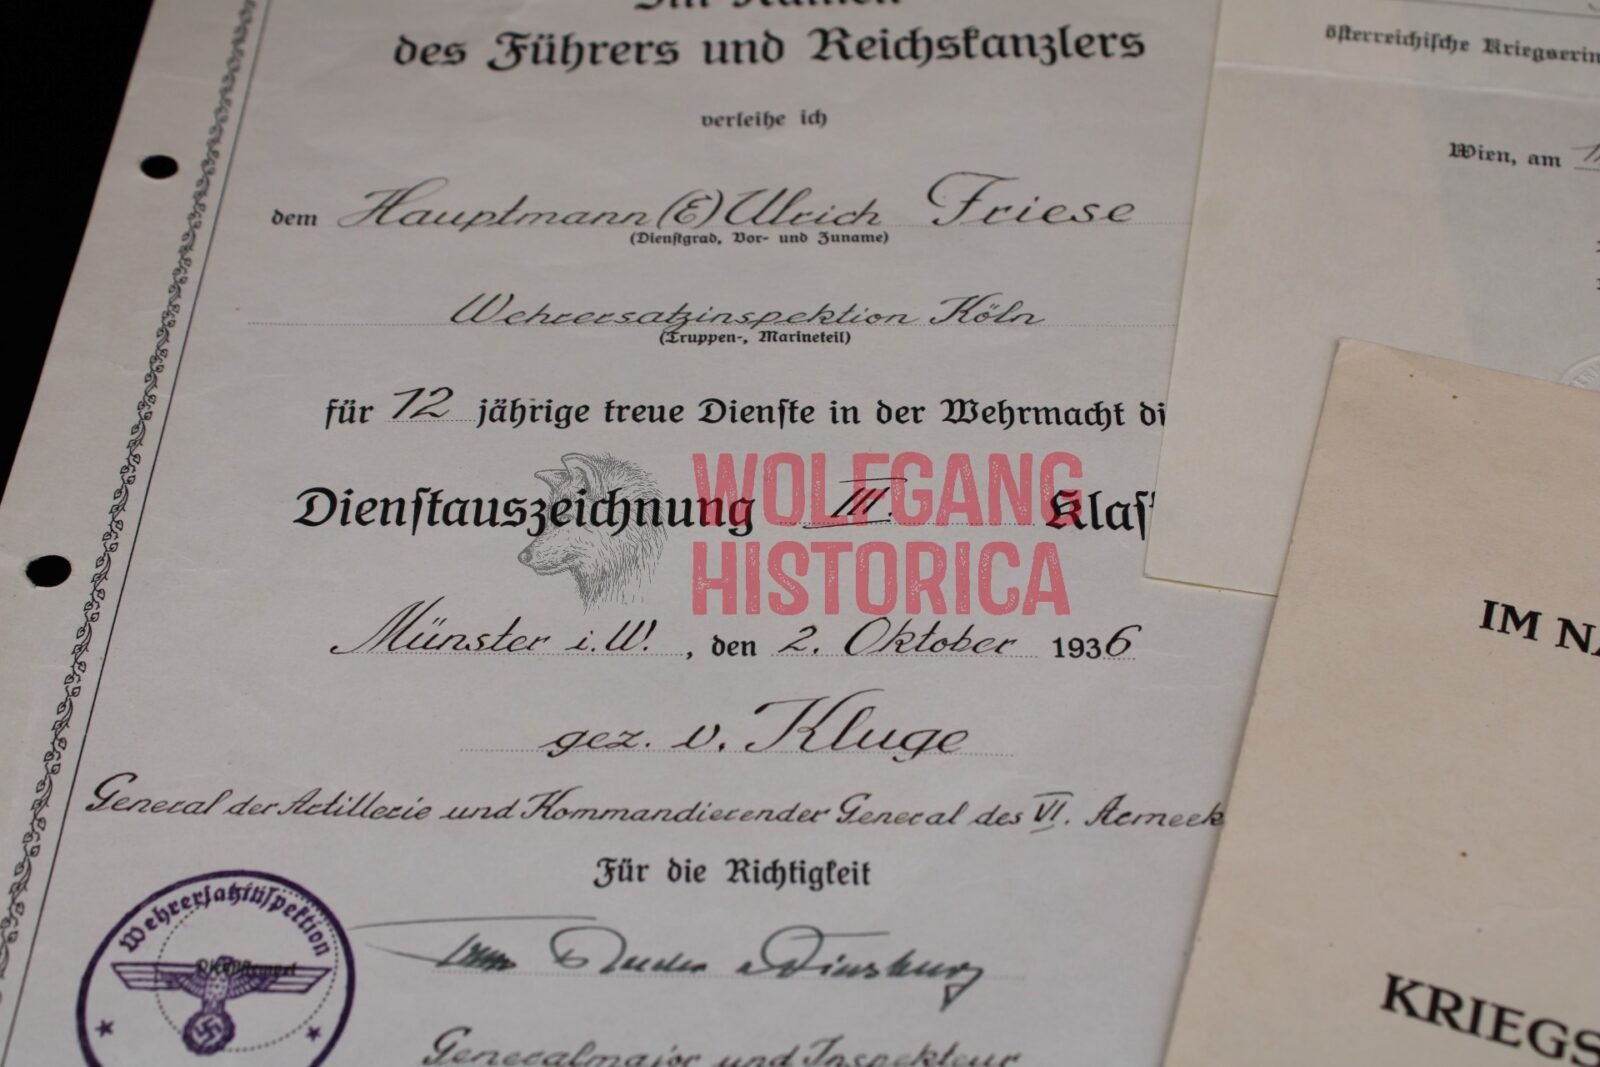 Im Namen
des Führers und Reichskanzlers
verleihe ich
dem Hauptmann (E) Ulrich Friese
(Dienstgrad, Vor- und Zuname)
Wehrersatzinspektion Köln
(Truppen-, Marineteil)
für 12 jährige treue Dienste in der Wehrmacht di
Dienstauszeichnung III. Klas
WOLFGANG
HISTORICA
Münster i.W., den 2. Oktober 1936
gez. v. Kluge
General der Artillerie und Kommandierender General des VI. Armeek
Für die Richtigkeit
Wehrersatzinspektion
Dienststempel
Generalmajor und Inspekteur
österreichische Kriegserin
Wien, am
IM NA
KRIEGS